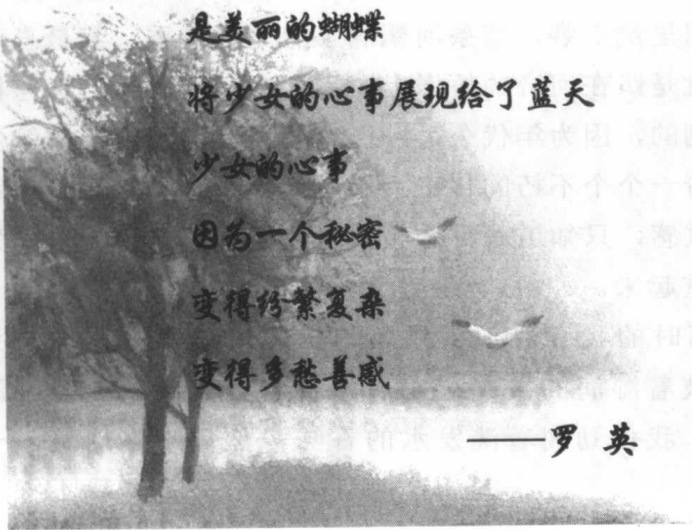 是美丽的蝴蝶
将少女的心事展现给了蓝天
少女的心事
因为一个秘密
变得纷繁复杂
变得多愁善感
——罗 英